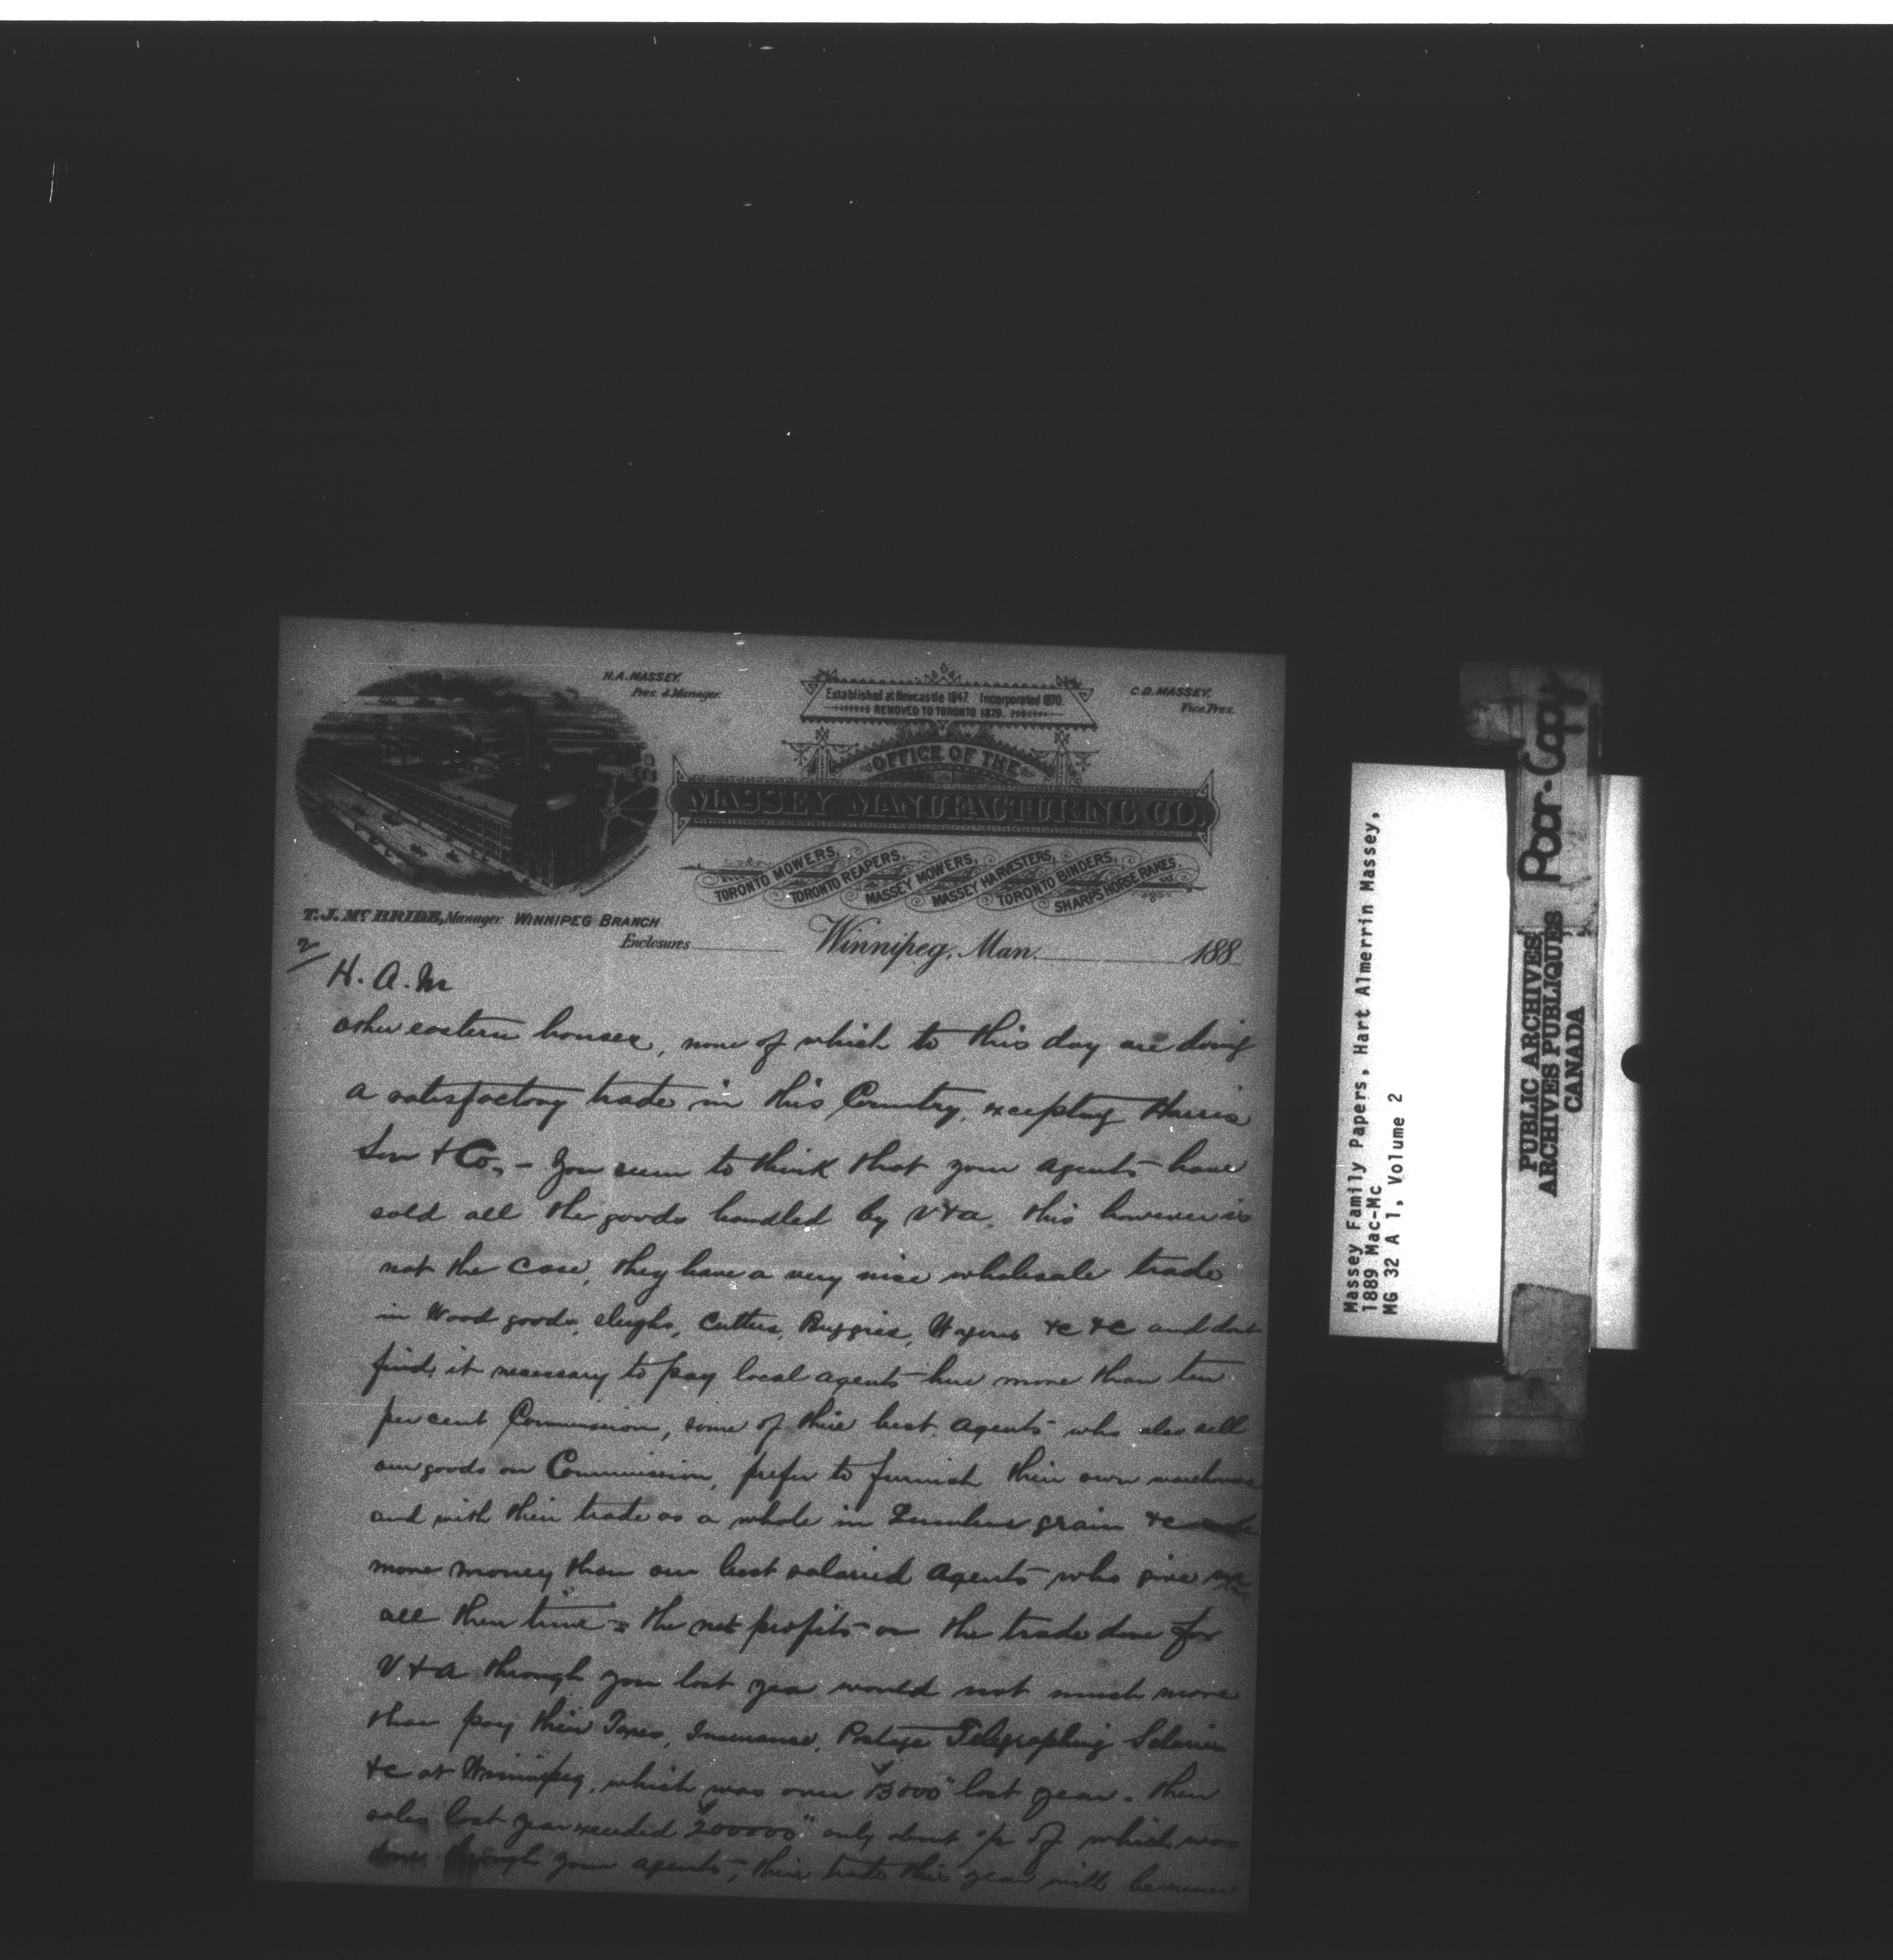 H.A. MASSEY.
Pres. & Manager.
Established at Newcastle 1847. Incorporated 1870.
REMOVED TO TORONTO 1879.
C.D. MASSEY,
Vice Pres.
OFFICE OF THE
MASSEY MANUFACTURING CO.
TORONTO MOWERS, TORONTO REAPERS. MASSEY MOWERS, MASSEY HARVESTERS, TORONTO BINDERS, SHARPS HORSE RAKES.
T.J. McBRIDE, Manager. WINNIPEG BRANCH
Enclosures
Winnipeg, Man. 188
2/
H. A. M
other eastern houses, none of which to this day are doing
a satisfactory trade in this Country, excepting Harris
Son & Co, - You seem to think that your agents have
sold all the goods handled by V&A, this however is
not the case, they have a very nice wholesale trade
in Wood goods, sleighs, Cutters, Buggies, Wagons &c &c and dont
find it necessary to pay local agents here more than ten
per cent Commission, some of their best agents who also sell
our goods on Commission, prefer to furnish their own warehouses
and with their trade as a whole in grain &c
more money than our best salaried agents who give us
all their time = the net profits on the trade done for
V & A through you last year would not much more
than pay their Taxes, Insurance, Postage Telegraphing Salaries
&c at Winnipeg, which was over $15000 last year. their
sales last year exceeded $200000 only about of which was
done through your agents, their trade this year will be
Massey Family Papers, Hart Almerrin Massey,
1889 Mac-Mc
MG 32 A 1, Volume 2
PUBLIC ARCHIVES
ARCHIVES PUBLIQUES
CANADA
Poor-Copy